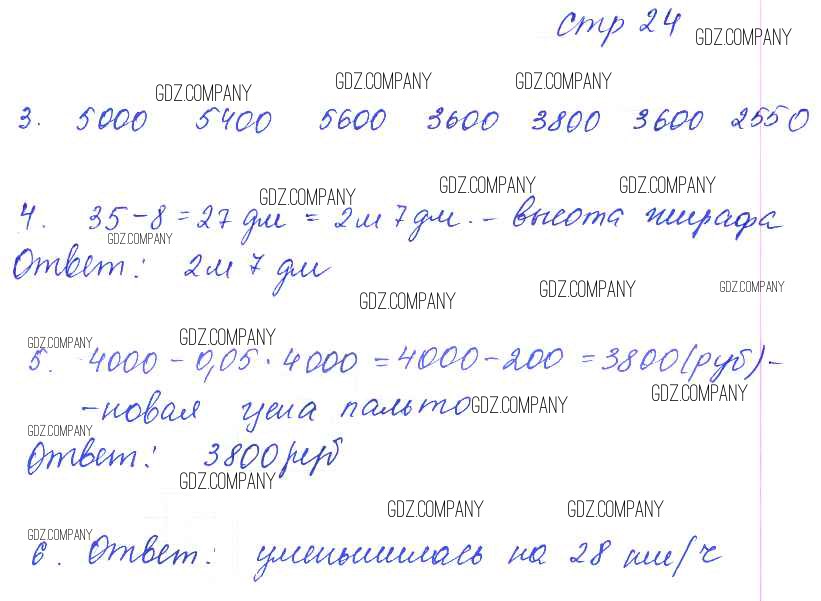 стр 24
GDZ.COMPANY
GDZ.COMPANY GDZ.COMPANY GDZ.COMPANY
3. 5000 5400 5600 3600 3800 3600 2550
GDZ.COMPANY GDZ.COMPANY GDZ.COMPANY
4. 35-8=27 дм = 2м 7 дм. - высота жирафа
GDZ.COMPANY
Ответ: 2м 7 дм
GDZ.COMPANY GDZ.COMPANY GDZ.COMPANY
GDZ.COMPANY GDZ.COMPANY
5. 4000 - 0,05 · 4000 = 4000 - 200 = 3800 (руб) -
- новая цена пальто GDZ.COMPANY GDZ.COMPANY
GDZ.COMPANY
Ответ: 3800 руб
GDZ.COMPANY
GDZ.COMPANY GDZ.COMPANY
GDZ.COMPANY
6. Ответ: уменьшилась на 28 км/ч